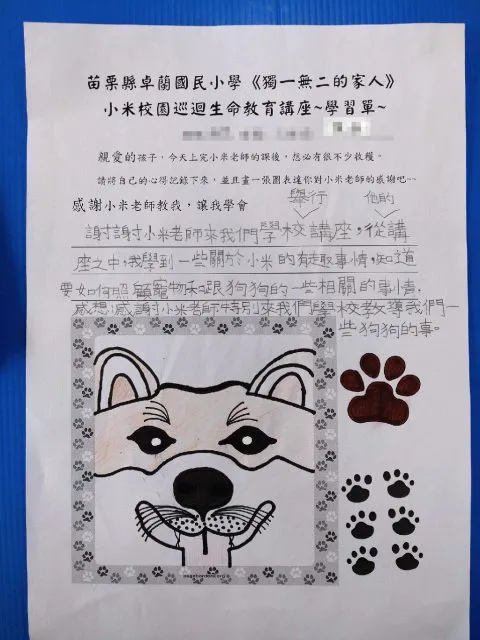 苗栗縣卓蘭國民小學《獨一無二的家人》
小米校園巡迴生命教育講座~學習單~
親愛的孩子，今天上完小米老師的課後，想必有很不少收穫。
請將自己的心得記錄下來，並且畫一張圖表達你對小米老師的感謝吧~~
感謝小米老師教我，讓我學會
舉行 他的
謝謝小米老師來我們學校講座，從講
座之中，我學到一些關於小米的有趣事情，知道
要如何照顧寵物和跟狗狗的一些相關的事情.
感想:感謝小米老師特別來我們學校教導我們一
些狗狗的事。